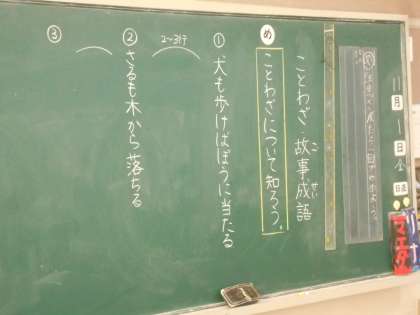 11月1日
日直
マエダ
ことわざ・故事成語
こ
せい
め
ことわざについて知ろう。
①
犬も歩けばぼうに当たる
2〜3行
②
さるも木から落ちる
③